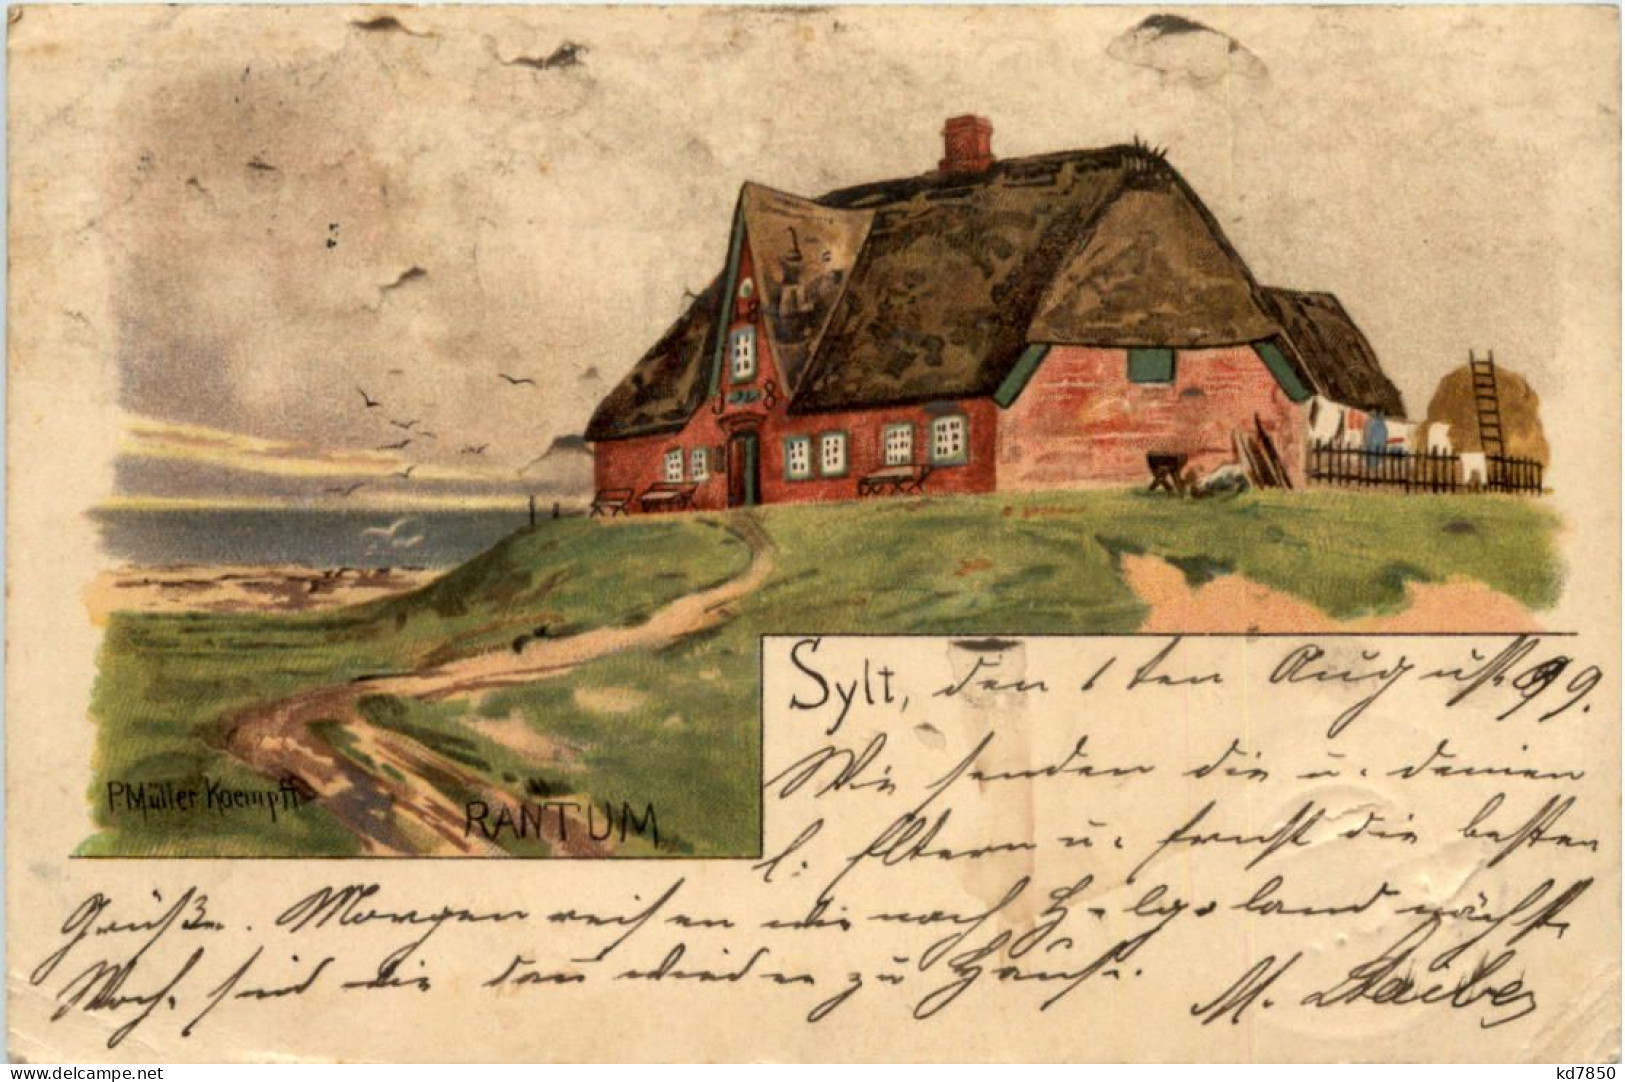 8
8
P. Müller Kaempff
RANTUM
Sylt, den 1ten August 99.
Wir senden dir u. deinen
l. Eltern u. Ernst die besten
Grüße. Morgen reisen wir nach Helgoland nächste
Woche sind wir dann wieder zu Hause.
M.
www.delcampe.net
kd7850